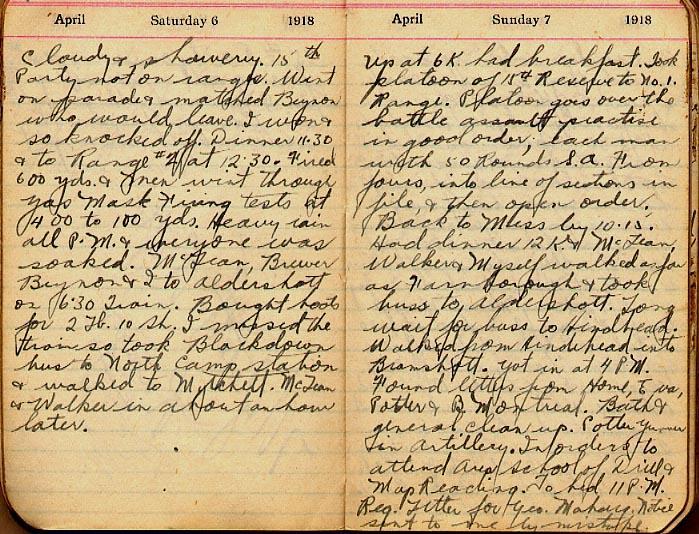 April Saturday 6 1918
Cloudy & showery. 15th
Party not on range. Went
on parade & matched Beynon
who would leave. I won &
so knocked off. Dinner 11.30
& to Range #4 at 12.30. Fired
600 yds. & then went through
gas Mask Firing tests at
400 to 100 yds. Heavy rain
all P.M. & everyone was
soaked. McLean, Brewer
Beynon & I to Aldershott
on 6.30 Train. Bought boots
for 2 lb. 10 Sh. I missed the
train so took Blackdown
bus to North Camp station
& walked to Mytchett. McLean
& Walker in about an hour
later.
April Sunday 7 1918
Up at 6K had breakfast. Took
platoon of 15th Reserve to No. 1.
Range. Platoon goes over the
battle assault practise
in good order, each man
with 50 Rounds S.A. From
fours, into line of sections in
file, & then open order.
Back to Mess by 10.15.
Had dinner 12K & McLean,
Walker & Myself walked as far
as Farnborough & took
buss to Aldershott. Long
wait for buss to Hindhead.
Walked from Hindhead into
Bramshott. Got in at 4 P.M.
Found letters from Home,
Potter & B. Montreal. Bath &
general clean up. Potter Gunner
in Artillery. In orders to
attend Army School of Drill &
Map Reading. To bed 11 P.M.
Reg. Letter for Geo. Notice
sent to me by mistake.